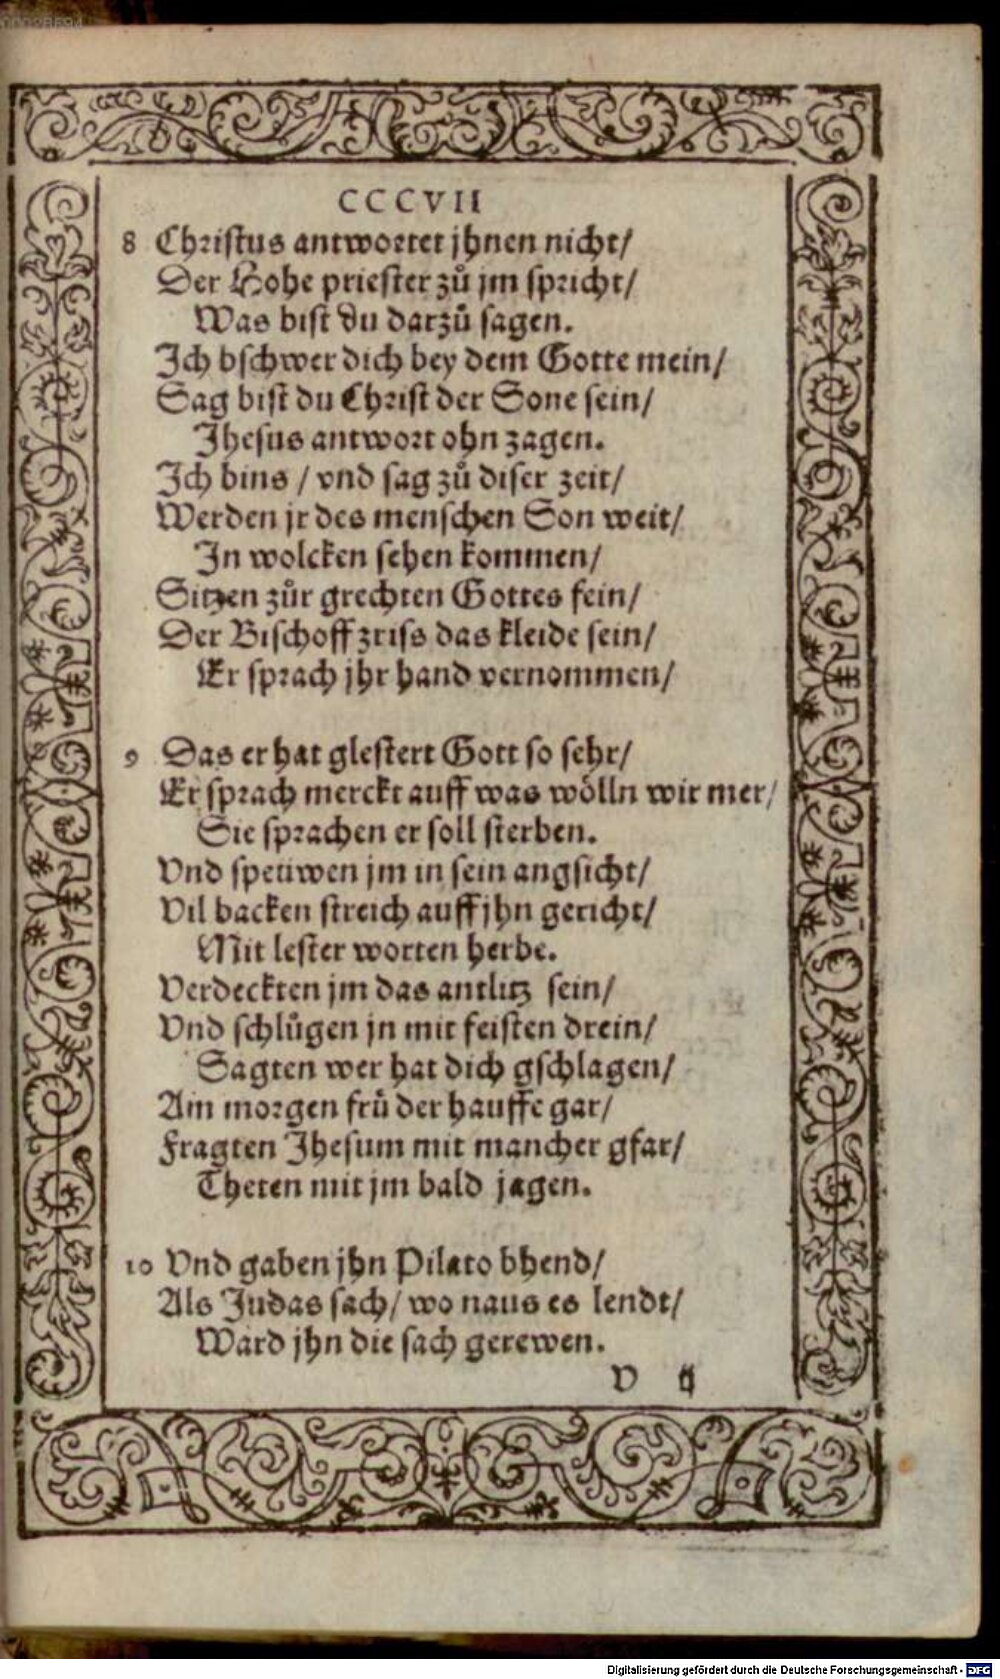 CCCVII
8 Christus antwortet jhnen nicht/
Der Hohe priester zů jm spricht/
Was bist du darzů sagen.
Ich bschwer dich bey dem Gotte mein/
Sag bist du Christ der Sone sein/
Jhesus antwort ohn zagen.
Ich bins / vnd sag zů diser zeit/
Werden jr des menschen Son weit/
In wolcken sehen kommen/
Sitzen zůr grechten Gottes fein/
Der Bischoff zriss das kleide sein/
Er sprach jhr hand vernommen/
9 Das er hat glestert Gott so sehr/
Er sprach merckt auff was wölln wir mer/
Sie sprachen er soll sterben.
Vnd speüwen jm in sein angsicht/
Vil backen streich auff jhn gericht/
Mit lester worten herbe.
Verdeckten jm das antlitz sein/
Vnd schlůgen jn mit feisten drein/
Sagten wer hat dich gschlagen/
Am morgen frü der hauffe gar/
Fragten Jhesum mit mancher gfar/
Theten mit jm bald jagen.
10 Vnd gaben jhn Pilato bhend/
Als Judas sach/ wo naus es lendt/
Ward jhn die sach gerewen.
V ij
Digitalisierung gefördert durch die Deutsche Forschungsgemeinschaft - DFG